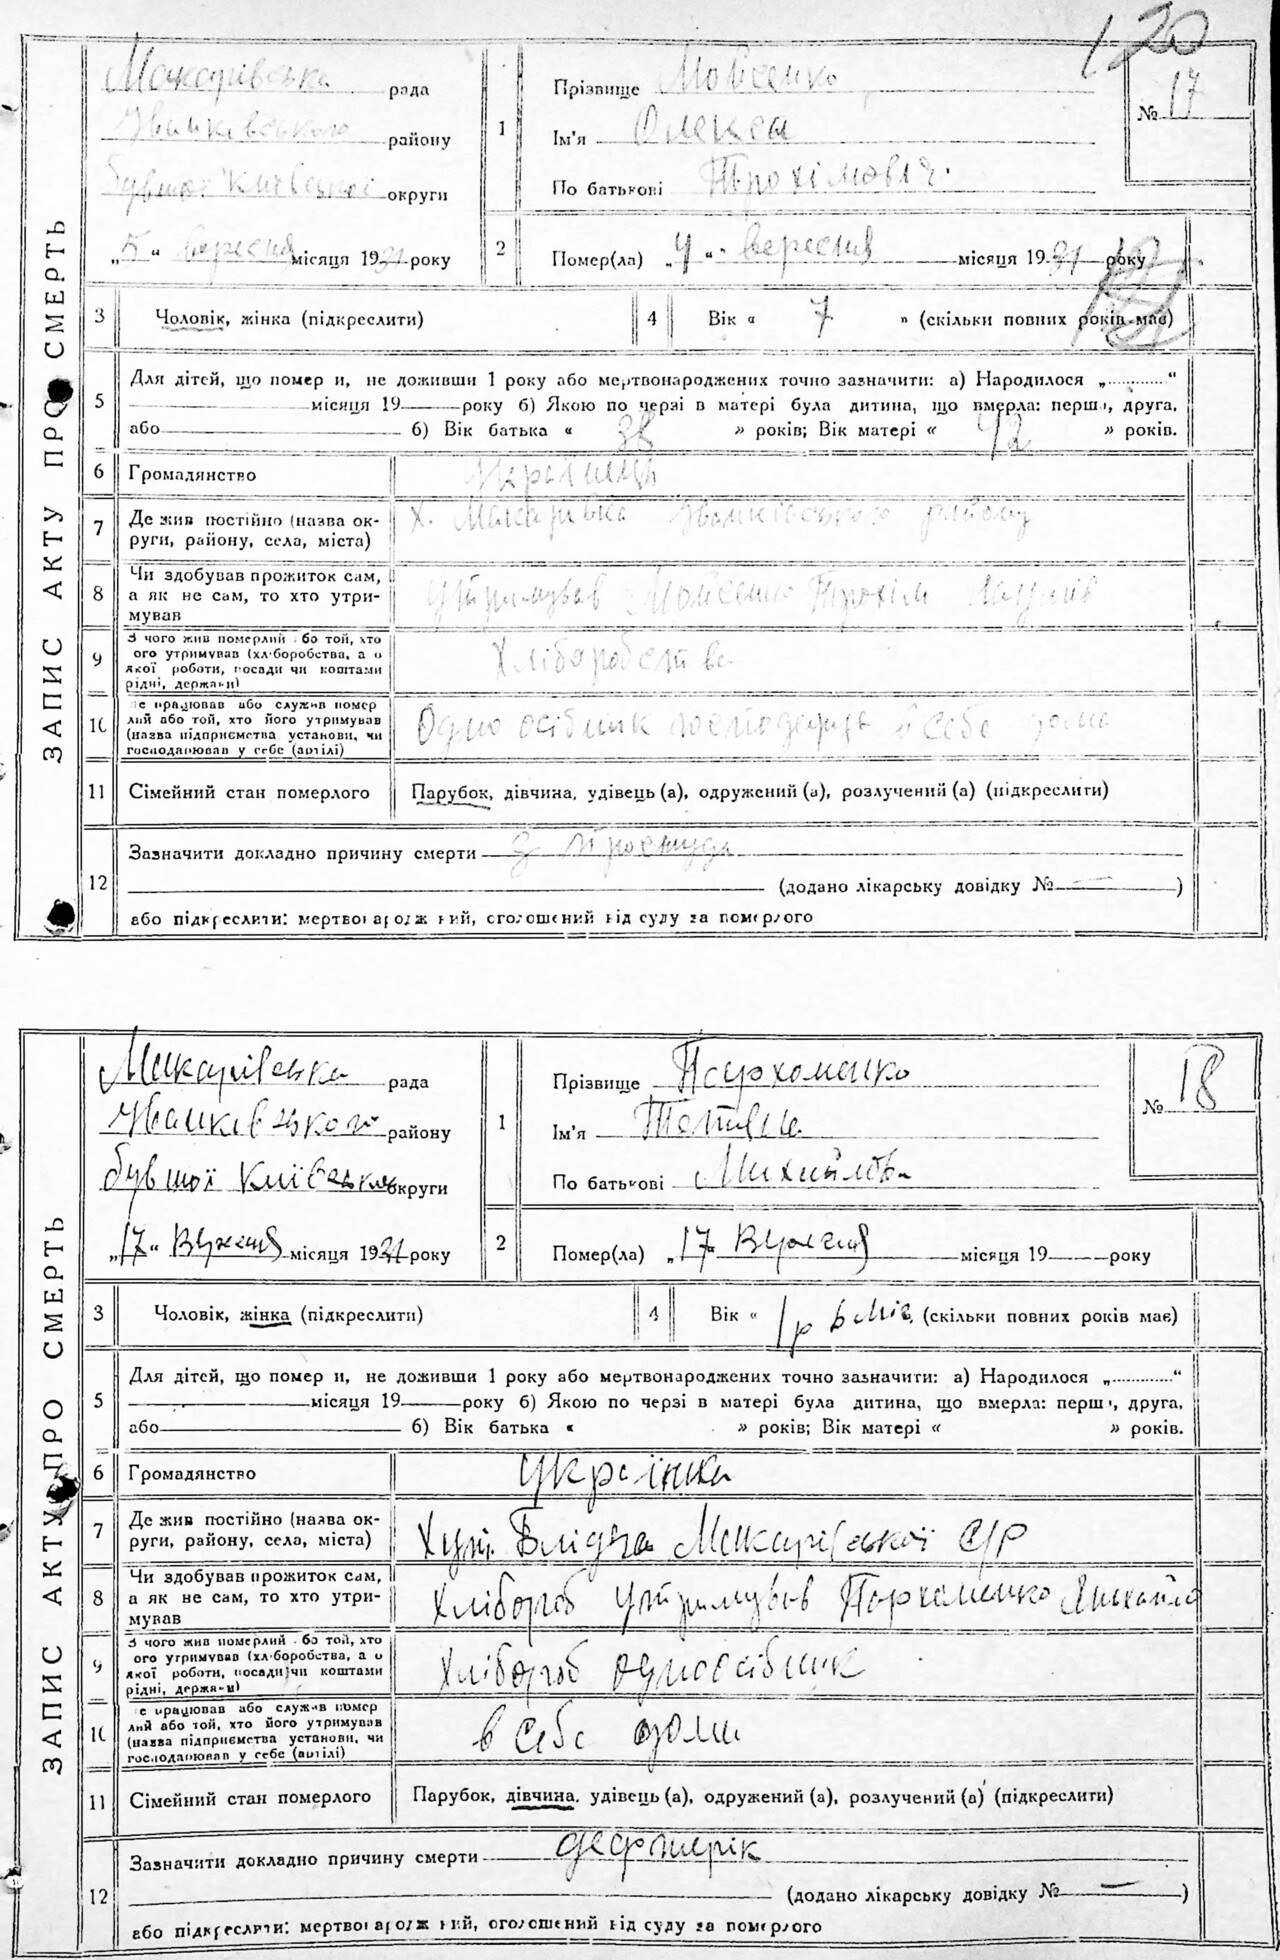 120
ЗАПИС АКТУ ПРО СМЕРТЬ
Макарівська рада
Іванківського району
бувшої Київської округи
„5“ вересня місяця 1931 року
1
Прізвище Мойсенко
Ім'я Олекса
По батькові Трохімовіч.
№ 17
2
Помер(ла) „4“ вересня місяця 1931 року
3 Чоловік, жінка (підкреслити)
4 Вік « 7 » (скільки повних років має)
5 Для дітей, що помер и, не доживши 1 року або мертвонароджених точно зазначити: а) Народилося „............“
місяця 19 року б) Якою по черзі в матері була дитина, що вмерла: перша, друга,
або б) Вік батька « 38 » років; Вік матері « 42 » років.
6 Громадянство Українець
7 Де жив постійно (назва ок-
руги, району, села, міста)
х. Макарівка Іванківського району
8 Чи здобував прожиток сам,
а як не сам, то хто утри-
мував
утримував Мойсенко Трохім
9 З чого жив померлий або той, хто
ого утримував (хл-боробства, а о
якої роботи, посади чи коштами
рідні, держави)
Хліборобства
10 е працював або служив помер
лий або той, хто його утримував
(назва підприємства установи, чи
господарював у себе (артілі)
Одноосібник господарує в себе дома
11 Сімейний стан померлого Парубок, дівчина, удівець (а), одружений (а), розлучений (а) (підкреслити)
12 Зазначити докладно причину смерти з простуди
(додано лікарську довідку № — )
або підкреслити: мертвонароджений, оголошений від суду за померлого
ЗАПИС АКТУ ПРО СМЕРТЬ
Макарівська рада
Іванківського району
бувшої Київської округи
„17“ Вересня місяця 1931 року
1
Прізвище Пархоменко
Ім'я Тетяна
По батькові Михайлівна
№ 18
2
Помер(ла) „17 Вересня місяця 19 року
3 Чоловік, жінка (підкреслити)
4 Вік « 1 р 6 міс. (скільки повних років має)
5 Для дітей, що помер и, не доживши 1 року або мертвонароджених точно зазначити: а) Народилося „............“
місяця 19 року б) Якою по черзі в матері була дитина, що вмерла: перша, друга,
або б) Вік батька « » років; Вік матері « » років.
6 Громадянство Українка
7 Де жив постійно (назва ок-
руги, району, села, міста)
Хут. Блідча Макарівської С/Р
8 Чи здобував прожиток сам,
а як не сам, то хто утри-
мував
Хлібороб утримував Пархоменко Михайло
9 З чого жив померлий або той, хто
ого утримував (хл-боробства, а о
якої роботи, посади чи коштами
рідні, держави)
Хлібороб одноосібник
10 е працював або служив помер
лий або той, хто його утримував
(назва підприємства установи, чи
господарював у себе (артілі)
в себе дома
11 Сімейний стан померлого Парубок, дівчина, удівець (а), одружений (а), розлучений (а) (підкреслити)
12 Зазначити докладно причину смерти дефтерік
(додано лікарську довідку № — )
або підкреслити: мертвонароджений, оголошений від суду за померлого